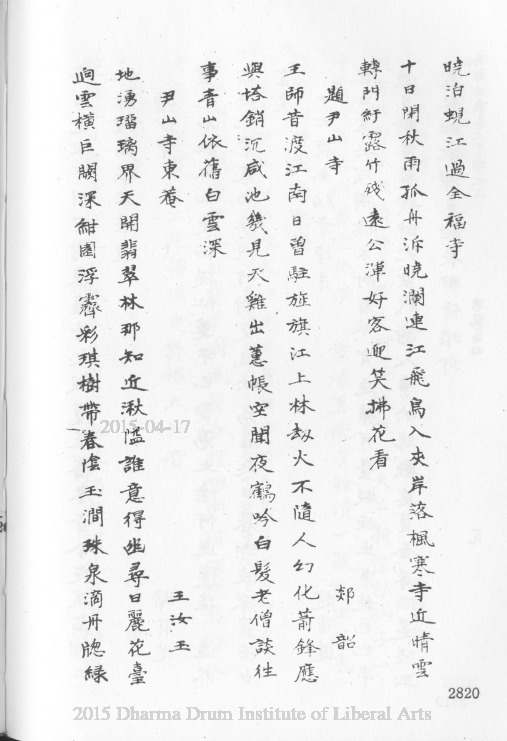 曉泊蜆江過全福寺
十日閉秋雨孤舟泝曉瀾連江飛鳥入夾岸落楓寒寺近晴雲
轉門紆露竹殘遠公渾好客迎笑拂花看
題尹山寺 郯韶
王師昔渡江南日曾駐旌旗江上林劫火不隨人幻化葥鋒應
與塔銷沉咸池幾見天雞出蕙帳空聞夜鶴吟白髮老僧談往
事青山依舊白雲深
尹山寺東菴 王汝玉
地湧瑠璃界天開翡翠林那知近湫隘誰意得幽尋日麗花臺
逈雲橫巨闕深紺園浮霽彩琪樹帶春陰玉澗珠泉滴丹牕緑
2820
2015-04-17
2015 Dharma Drum Institute of Liberal Arts